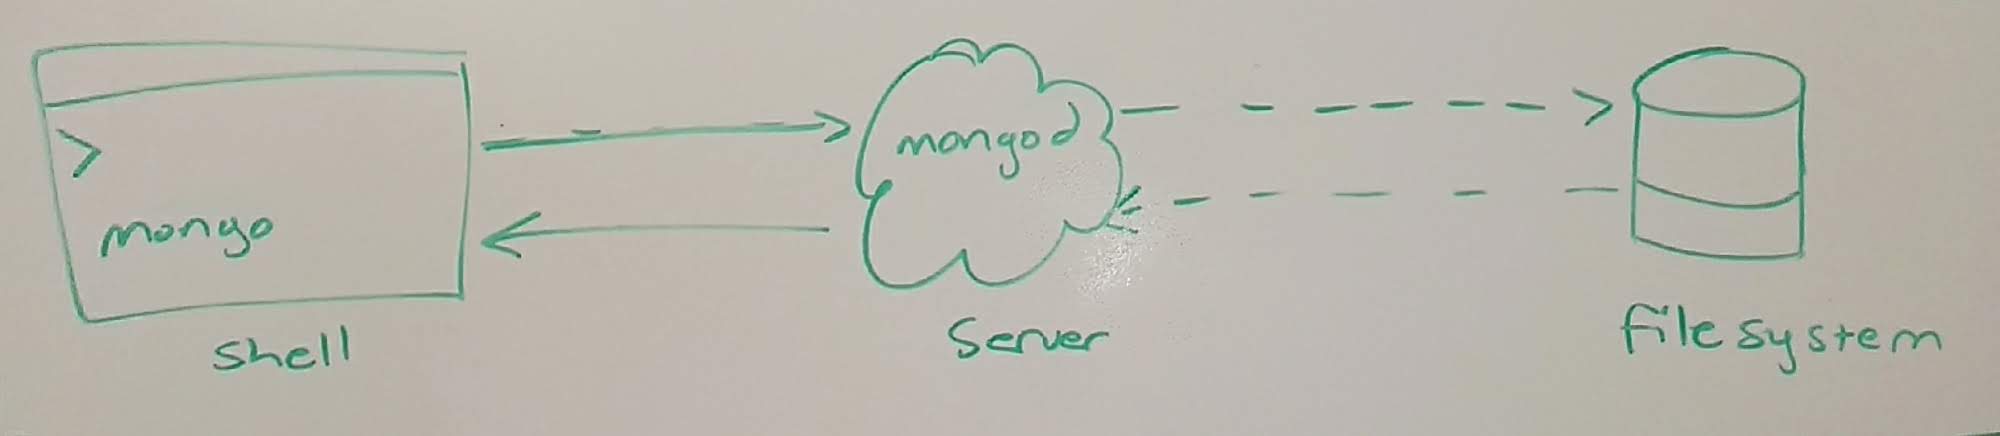 >
mongo
shell
mongod
Server
filesystem